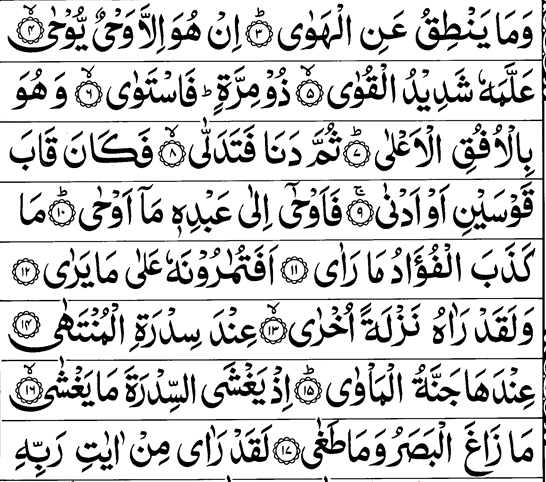 وَمَا يَنْطِقُ عَنِ الْهَوٰى ۝٣ اِنْ هُوَ اِلَّا وَحْىٌ يُّوْحٰى ۝٤
عَلَّمَهٗ شَدِيْدُ الْقُوٰى ۝٥ ذُوْ مِرَّةٍ ؕ فَاسْتَوٰى ۝٦ وَهُوَ
بِالْاُفُقِ الْاَعْلٰى ۝٧ ثُمَّ دَنَا فَتَدَلّٰى ۝٨ فَكَانَ قَابَ
قَوْسَيْنِ اَوْ اَدْنٰى ۝٩ فَاَوْحٰۤى اِلٰى عَبْدِهٖ مَاۤ اَوْحٰى ۝١٠ مَا
كَذَبَ الْفُؤَادُ مَا رَاٰى ۝١١ اَفَتُمٰرُوْنَهٗ عَلٰى مَا يَرٰى ۝١٢
وَلَقَدْ رَاٰهُ نَزْلَةً اُخْرٰى ۝١٣ عِنْدَ سِدْرَةِ الْمُنْتَهٰى ۝١٤
عِنْدَهَا جَنَّةُ الْمَاْوٰى ۝١٥ اِذْ يَغْشَى السِّدْرَةَ مَا يَغْشٰى ۝١٦
مَا زَاغَ الْبَصَرُ وَمَا طَغٰى ۝١٧ لَقَدْ رَاٰى مِنْ اٰيٰتِ رَبِّهِ